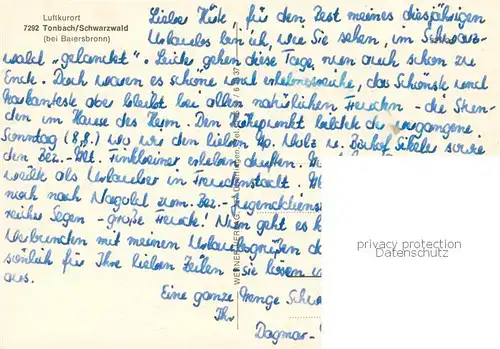 Luftkurort
7292 Tonbach/Schwarzwald
(bei Baiersbronn)
Lieber Hüte, für den Rest meines diesjährigen
Urlaubes bin ich, wie Sie sehen, im Schwarz-
wald "gelandet". Leider gehen diese Tage nun auch schon zu
Ende. Doch waren es schöne und erlebnisreiche, das Schönste und
Markanteste aber bleibt bei allen natürlichen Freuden - die Stun-
den im Hause des Herrn. Den Höhepunkt bildete der vergangene
Sonntag (8.8.) wo wir den lieben Ap. Volz u. Bischof sowie
den Bez.-Ält. Finkbeiner erleben durften.
weilte als Urlauber in Freudenstadt.
noch nach Nagold zum Bez.-Jugenddienst
reicher Segen - große Freude! Nun geht es
Verbunden mit meinen Urlaubsgrüßen
sönlich für Ihre lieben Zeilen. Sie lösen
aus.
Eine ganze Menge
Ihr
Dagmar-
privacy protection
Datenschutz